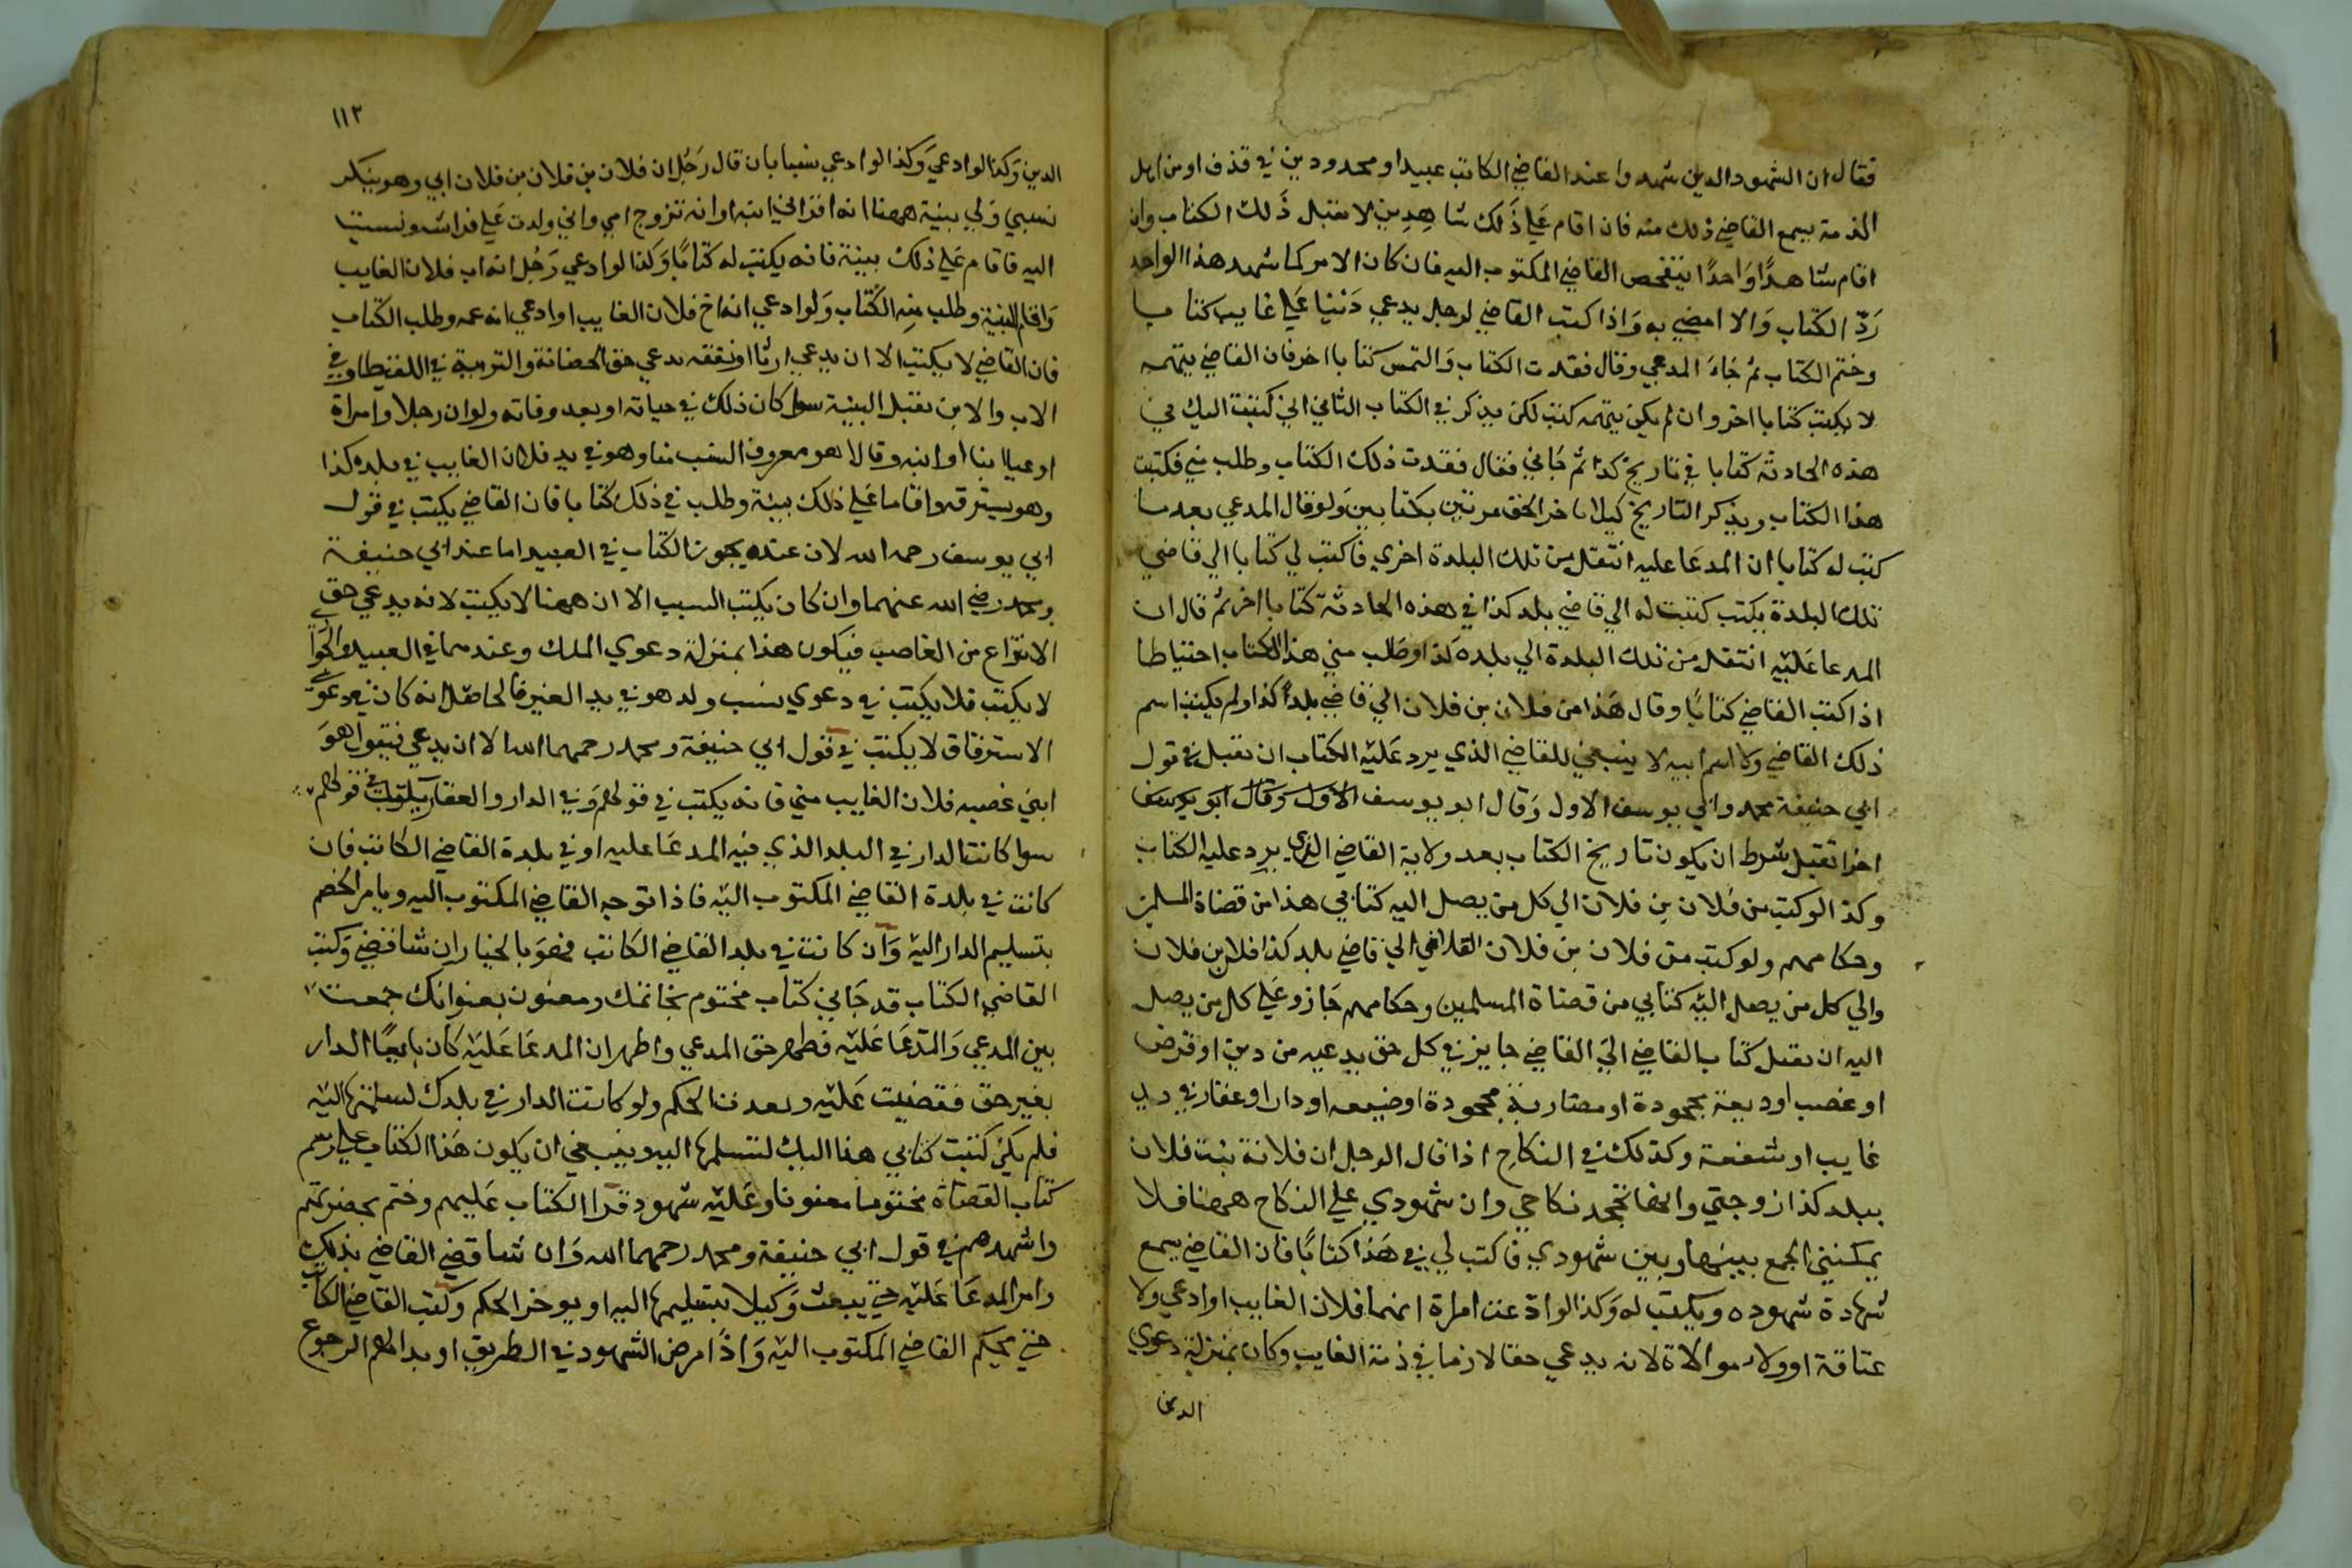 فقال ان الشهود الدين شهدوا عند القاضي الكاتب عبيدا او محدودين في قذف او من اهل
الذمة يسمع القاضي ذلك منه فان اقام علي ذلك شاهدين لا يقبل ذلك الكتاب وان
اقام شاهدًا واحدًا يتفحص القاضي المكتوب اليه فان كان الامر كما شهد هذا الواحد
ردّ الكتاب والا امضي به واذا كتب القاضي لرجل يدعي دينا علي غايب كتابا
وختم الكتاب ثم جاء المدعي وقال فقدت الكتاب والتمس كتابا اخر فان القاضي يتهمه
لا يكتب كتابا اخر وان لم يكن يتهمه كتب لكن يذكر في الكتاب الثاني اني كتبت اليك في
هذه الحادثه كتابا في تاريخ كذا ثم جاني فقال فقدت ذلك الكتاب وطلب مني فكتبت
هذا الكتاب ويذكر التاريخ كيلا ياخذ الحق مرتين بكتابين ولو قال المدعي بعد ما
كتب له كتابا ان المدعا عليه انتقل من تلك البلدة اخري فاكتب لي كتابا الي قاضي
تلك البلدة يكتب كتبت له الي قاضي بلد كذا في هذه الحادثة كتابا اخر ثم قال ان
المدعا عليه انتقل من تلك البلدة الي بلده كذا وطلب مني هذا الكتاب احتياطا
اذا كتب القاضي كتابًا وقال هذا من فلان بن فلان الي قاضي بلد كذا ولم يكتب اسم
ذلك القاضي ولا اسم ابيه لا ينبغي للقاضي الذي يرد عليه الكتاب ان يقبل في قول
ابي حنيفة محمد وابي يوسف الاول وقال ابو يوسف الاول وقال ابو يوسف
اخرا تقبل شرط ان يكون تاريخ الكتاب بعد ولاية القاضي الذي يرد عليه الكتاب
وكذا لو كتب من فلان بن فلان الي كل من يصل اليه كتابي هذا من قضاة المسلمين
وحكامهم ولو كتب من فلان بن فلان القاضي الي قاضي بلد كذا فلان بن فلان
والي كل من يصل اليه كتابي من قضاة المسلمين وحكامهم جاز وعلي كل من يصل
اليه ان يقبل كتاب القاضي الي القاضي جايز في كل حق يدعيه من دين او قرض
او غصب او ديعة مجحودة او مضاربة مجحودة او ضيعه او دار او عقار في يد
غايب او شفعة وكذلك في النكاح اذا قال الرجل ان فلانة بنت فلان
ببلد كذا زوجتي وانها تجحد نكاحي وان شهودي علي النكاح ههنا فلا
يمكنني الجمع بينها وبين شهودي فاكتب لي في هذا كتابًا فان القاضي يسمع
شهادة شهوده ويكتب له وكذا لو ادعت امراة انها فلان الغايب او ادعي ولا
عتاقة او ولاء موالاة لانه يدعي حقا لازما في ذمة الغايب وكان بمنزلة دعوي
الدين
١١٢
الدين وكذا لو ادعي وكذا لو ادعي نسبا بان قال رجل ان فلان بن فلان بن فلان ابي وهو ينكر
نسبي ولي بينة ههنا انه اقر اني ابنه او انه تزوج امي واني ولدت علي فراشه ونسبت
اليه فاقام علي ذلك بينة فانه يكتب له كتابًا وكذا لو ادعي رجل انه اب فلان الغايب
واقام البينة وطلب منه الكتاب ولو ادعي انه اخ فلان الغايب او ادعي انه عمه وطلب الكتاب
فان القاضي لا يكتب الا ان يدعي ارثا او نفقه يدعي حق الحضانة والتربية في اللقيط وفي
الاب والابن يقبل البينة سوا كان ذلك في حياته او بعد وفاته ولو ان رجلا وامراة
ادعيا ابنا او ابنه وقالا هو معروف النسب منا وهو في يد فلان الغايب في بلده كذا
وهو يسترقه واقاما علي ذلك بينة وطلب في ذلك كتابا فان القاضي يكتب في قول
ابي يوسف رحمه الله لان عنده يجوز الكتاب في العبيد اما عند ابي حنيفة
ومحمد رضي الله عنهما وان كان يكتب السبب الا ان ههنا لا يكتب لانه يدعي حق
الانتزاع من الغاصب فيكون هذا بمنزلة دعوي الملك وعندهما في العبيد والجواري
لا يكتب فلا يكتب في دعوي نسب ولد هو في يد الغير فالحاصل انه كان في دعوي
الاسترقاق لا يكتب في قول ابي حنيفة ومحمد رحمهما الله الا ان يدعي فيقول هو
ابني غصبه فلان الغايب مني فانه يكتب في قولهم وفي الدار والعقار يكتب في قولهم
سوا كانت الدار في البلد الذي فيه المدعا عليه او في بلدة القاضي الكاتب فان
كانت في بلدة القاضي المكتوب اليه فاذا توجه القاضي المكتوب اليه ويامر الخصم
بتسليم الدار اليه وان كانت في بلد القاضي الكاتب فهو بالخيار ان شا قضي وكتب
القاضي الكتاب قد جاني كتاب مختوم بخاتمك ومعنون بعنوانك جمعت
بين المدعي والمدعا عليه فظهر حق المدعي واظهر ان المدعا عليه كان بايعًا الدار
بغير حق فقضيت عليه وبعد الحكم ولو كانت الدار في بلدك لسلمتها اليه
فلم يكن كتبت كتابي هذا اليك لتسلمها اليه وينبغي ان يكون هذا الكتاب علي رسم
كتاب القضاة مختوما معنونا وعليه شهود قرا الكتاب عليهم وختم بحضرتهم
واشهدهم في قول ابي حنيفة ومحمد رحمهما الله وان شا قضي القاضي بذلك
وامر المدعا عليه حتي يبعث وكيلا بتسليمها اليه او يوخر الحكم وكتب القاضي الكاتب
حتي يحكم القاضي المكتوب اليه واذا مرض الشهود في الطريق او بدا لهم الرجوع